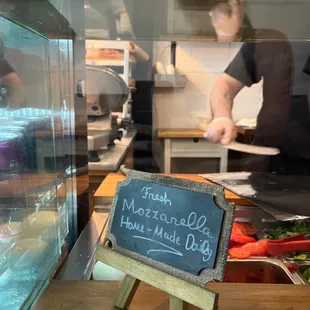 Fresh
Mozzarella
Home-Made Daily